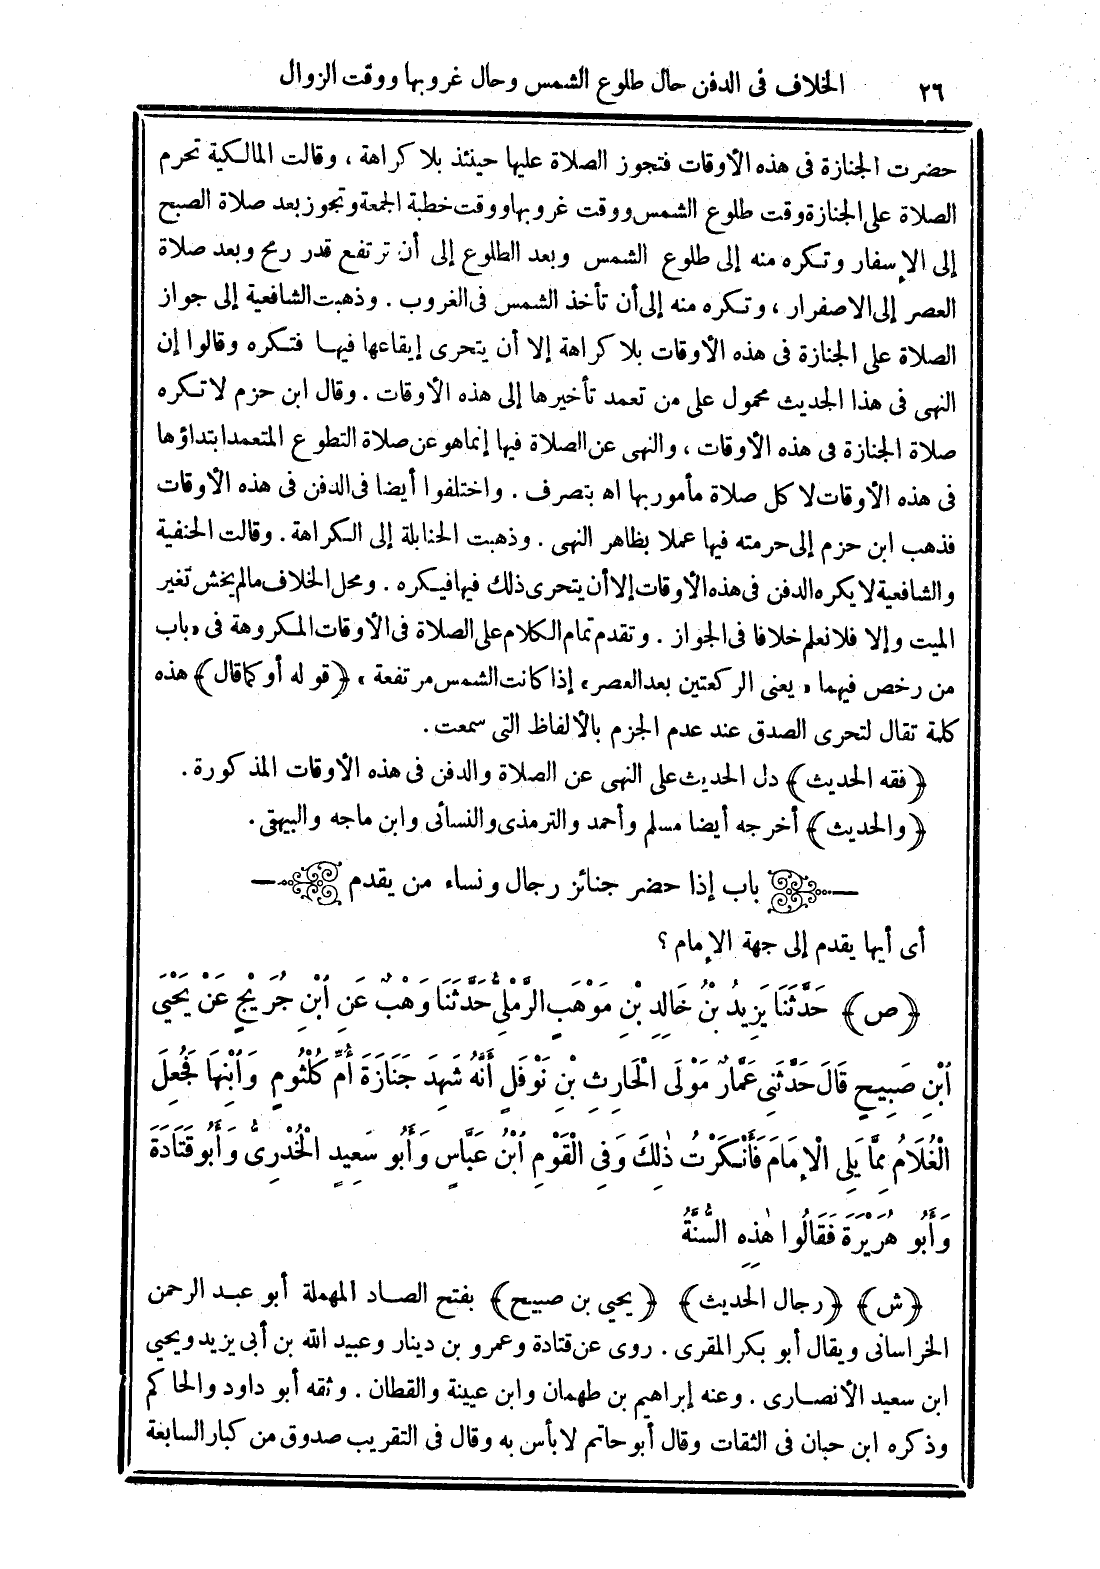 ٢٦ الخلاف فى الدفن حال طلوع الشمس وحال غروبها ووقت الزوال
حضرت الجنازة فى هذه الأوقات فتجوز الصلاة عليها حينئذ بلا كراهة ، وقالت المالكية تحرم
الصلاة على الجنازة وقت طلوع الشمس ووقت غروبها ووقت خطبة الجمعة وتجوز بعد صلاة الصبح
إلى الإسفار وتكره منه إلى طلوع الشمس وبعد الطلوع إلى أن ترتفع قدر رمح وبعد صلاة
العصر إلى الاصفرار ، وتكره منه إلى أن تأخذ الشمس فى الغروب . وذهبت الشافعية إلى جواز
الصلاة على الجنازة فى هذه الأوقات بلا كراهة إلا أن يتحرى إيقاعها فيها فتكره وقالوا إن
النهى فى هذا الحديث محمول على من تعمد تأخيرها إلى هذه الأوقات . وقال ابن حزم لا تكره
صلاة الجنازة فى هذه الأوقات ، والنهى عن الصلاة فيها إنما هو عن صلاة التطوع المتعمد ابتداؤها
فى هذه الأوقات لا كل صلاة مأمور بها اه بتصرف . واختلفوا أيضا فى الدفن فى هذه الأوقات
فذهب ابن حزم إلى حرمته فيها عملا بظاهر النهى . وذهبت الحنابلة إلى الكراهة . وقالت الحنفية
والشافعية لا يكره الدفن فى هذه الأوقات إلا أن يتحرى ذلك فيها فيكره . ومحل الخلاف مالم يخش تغير
الميت وإلا فلا نعلم خلافا فى الجواز . وتقدم تمام الكلام على الصلاة فى الأوقات المكروهة فى «باب
من رخص فيهما «يعنى الركعتين بعد العصر» إذا كانت الشمس مرتفعة» ﴿قوله أو كما قال﴾ هذه
كلمة تقال لتحرى الصدق عند عدم الجزم بالألفاظ التى سمعت .
﴿فقه الحديث﴾ دل الحديث على النهى عن الصلاة والدفن فى هذه الأوقات المذكورة .
﴿والحديث﴾ أخرجه أيضا مسلم وأحمد والترمذى والنسائى وابن ماجه والبيهقى .
باب إذا حضر جنائز رجال ونساء من يقدم
أى أيها يقدم إلى جهة الإمام ؟
﴿ص﴾ حَدَّثَنَا يَزِيدُ بْنُ خَالِدِ بْنِ مَوْهَبٍ الرَّمْلِىُّ حَدَّثَنَا وَهْبٌ عَنِ ابْنِ جُرَيْجٍ عَنْ يَحْيَى
ابْنِ صَبِيحٍ قَالَ حَدَّثَنِى عَمَّارٌ مَوْلَى الْحَارِثِ بْنِ نَوْفَلٍ أَنَّهُ شَهِدَ جَنَازَةَ أُمِّ كُلْثُومٍ وَابْنِهَا فَجُعِلَ
الْغُلَامُ مِمَّا يَلِى الْإِمَامَ فَأَنْكَرْتُ ذٰلِكَ وَفِى الْقَوْمِ ابْنُ عَبَّاسٍ وَأَبُو سَعِيدٍ الْخُدْرِىُّ وَأَبُو قَتَادَةَ
وَأَبُو هُرَيْرَةَ فَقَالُوا هٰذِهِ السُّنَّةُ
﴿ش﴾ ﴿رجال الحديث﴾ ﴿يحيى بن صبيح﴾ بفتح الصاد المهملة أبو عبد الرحمن
الخراسانى ويقال أبو بكر المقرى . روى عن قتادة وعمرو بن دينار وعبيد الله بن أبى يزيد ويحيى
ابن سعيد الأنصارى . وعنه إبراهيم بن طهمان وابن عيينة والقطان . وثقه أبو داود والحاكم
وذكره ابن حبان فى الثقات وقال أبو حاتم لا بأس به وقال فى التقريب صدوق من كبار السابعة